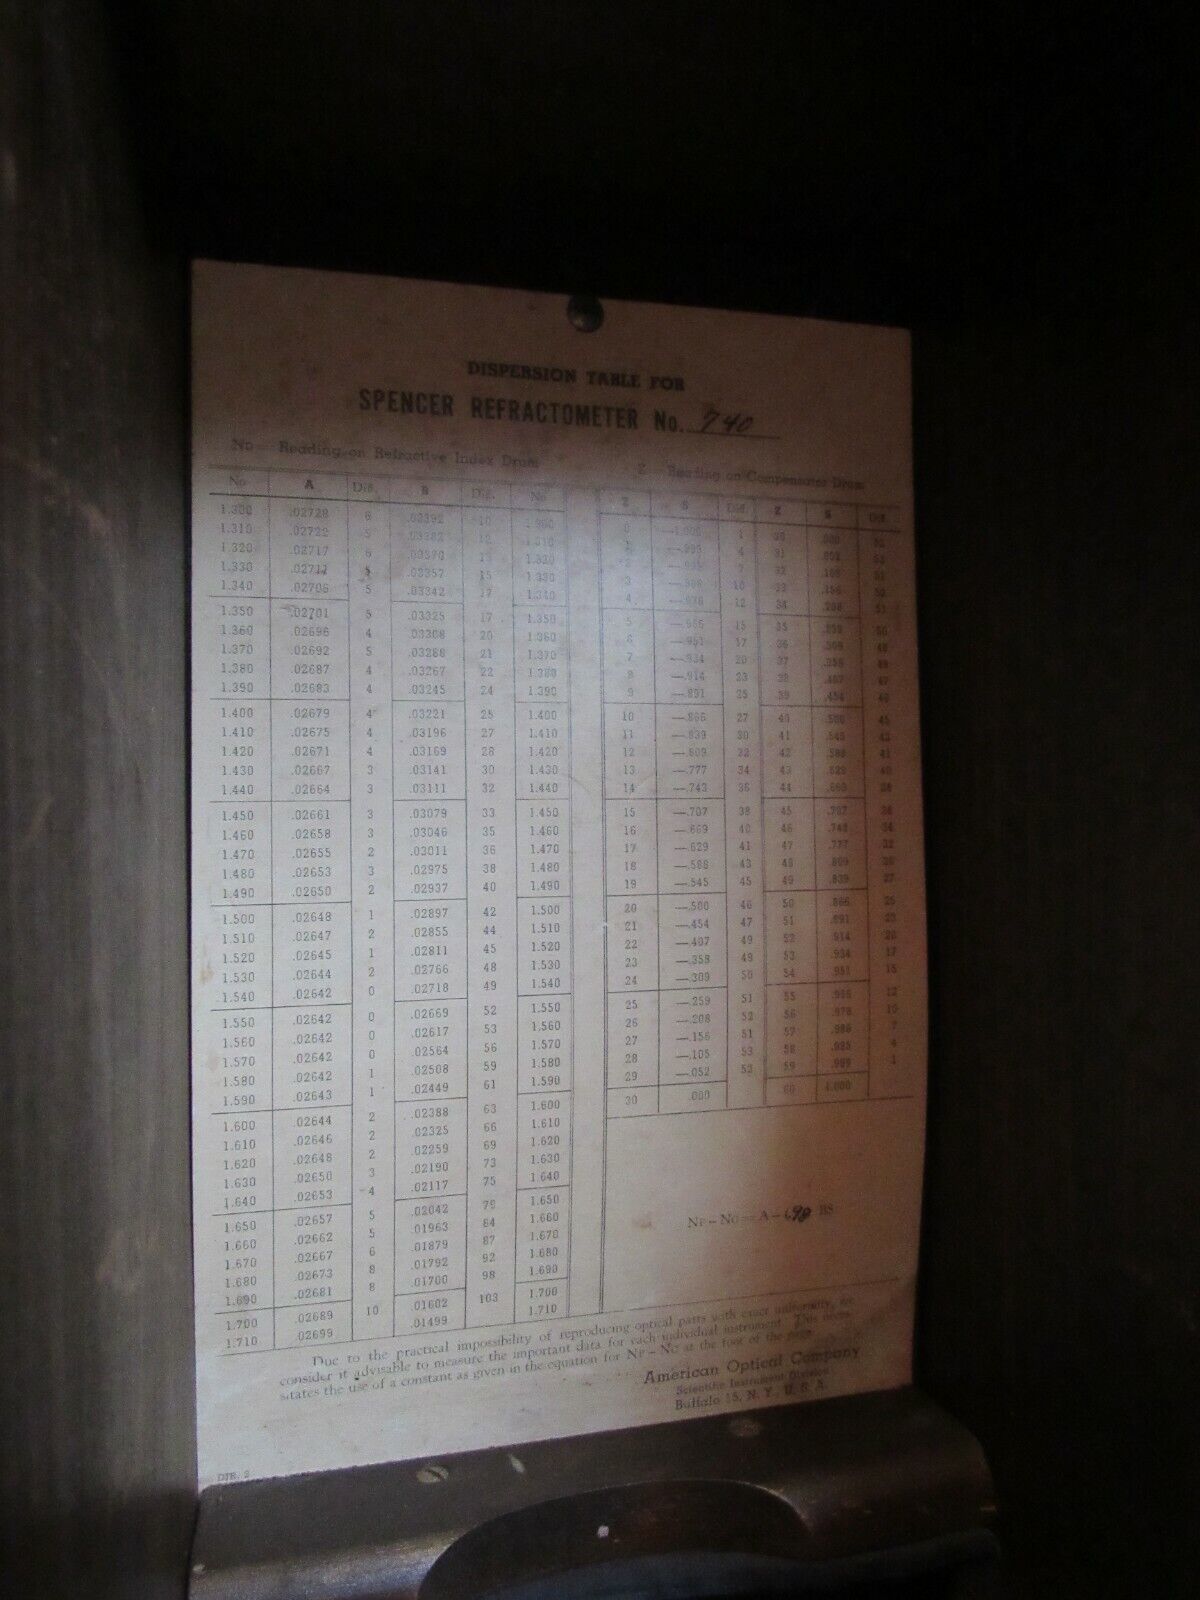 DISPERSION TABLE FOR
SPENCER REFRACTOMETER No. 740
ND — Reading on Refractive Index Drum
Z — Reading on Compensator Drum
No A Dif. B Dif. No
1.300 .02728 6 .03392 10 1.300
1.310 .02722 5 .03382 12 1.310
1.320 .02717 6 .03370 13 1.320
1.330 .02711 5 .03357 15 1.330
1.340 .02706 5 .03342 17 1.340
1.350 .02701 5 .03325 17 1.350
1.360 .02696 4 .03308 20 1.360
1.370 .02692 5 .03288 21 1.370
1.380 .02687 4 .03267 22 1.380
1.390 .02683 4 .03245 24 1.390
1.400 .02679 4 .03221 25 1.400
1.410 .02675 4 .03196 27 1.410
1.420 .02671 4 .03169 28 1.420
1.430 .02667 3 .03141 30 1.430
1.440 .02664 3 .03111 32 1.440
1.450 .02661 3 .03079 33 1.450
1.460 .02658 3 .03046 35 1.460
1.470 .02655 2 .03011 36 1.470
1.480 .02653 3 .02975 38 1.480
1.490 .02650 2 .02937 40 1.490
1.500 .02648 1 .02897 42 1.500
1.510 .02647 2 .02855 44 1.510
1.520 .02645 1 .02811 45 1.520
1.530 .02644 2 .02766 48 1.530
1.540 .02642 0 .02718 49 1.540
1.550 .02642 0 .02669 52 1.550
1.560 .02642 0 .02617 53 1.560
1.570 .02642 0 .02564 56 1.570
1.580 .02642 1 .02508 59 1.580
1.590 .02643 1 .02449 61 1.590
1.600 .02644 2 .02388 63 1.600
1.610 .02646 2 .02325 66 1.610
1.620 .02648 2 .02259 69 1.620
1.630 .02650 3 .02190 73 1.630
1.640 .02653 4 .02117 75 1.640
1.650 .02657 5 .02042 79 1.650
1.660 .02662 5 .01963 84 1.660
1.670 .02667 6 .01879 87 1.670
1.680 .02673 8 .01792 92 1.680
1.690 .02681 8 .01700 98 1.690
1.700 .02689 10 .01602 103 1.700
1.710 .02699 .01499 1.710
Z S Dif. Z S Dif.
0 —1.000 1 30 .000
4 31
2 32
3 10 33 .156
4 12 34 .208
5 —.966 15 35 .259 50
6 —.951 17 36 .309
7 —.934 20 37 .358
8 —.914 23 38 .407 47
9 —.891 25 39 .454 46
10 —.866 27 40 .500 45
11 —.839 30 41 43
12 —.809 32 42 .588 41
13 —.777 34 43 .629 40
14 —.743 36 44 .669 38
15 —.707 38 45 .707 36
16 —.669 40 46 .743 34
17 —.629 41 47 .777 32
18 —.588 43 48 .809 30
19 —.545 45 49 .839 27
20 —.500 46 50 .866 25
21 —.454 47 51 .891 23
22 —.407 49 52 .914 20
23 —.358 49 53 .934 17
24 —.309 50 54 .951 15
25 —.259 51 55 .966 12
26 —.208 52 56 .978 10
27 —.156 51 57 7
28 —.105 53 58 .995 4
29 —.052 52 59 .999 1
30 .000 60 1.000
NF – NC = A – .698 BS
Due to the practical impossibility of reproducing optical parts with exact uniformity, we
consider it advisable to measure the important data for each individual instrument. This neces-
sitates the use of a constant as given in the equation for NF – NC at the foot of the page.
American Optical Company
Scientific Instrument Division
Buffalo 15, N. Y., U. S. A.
DIR. 2